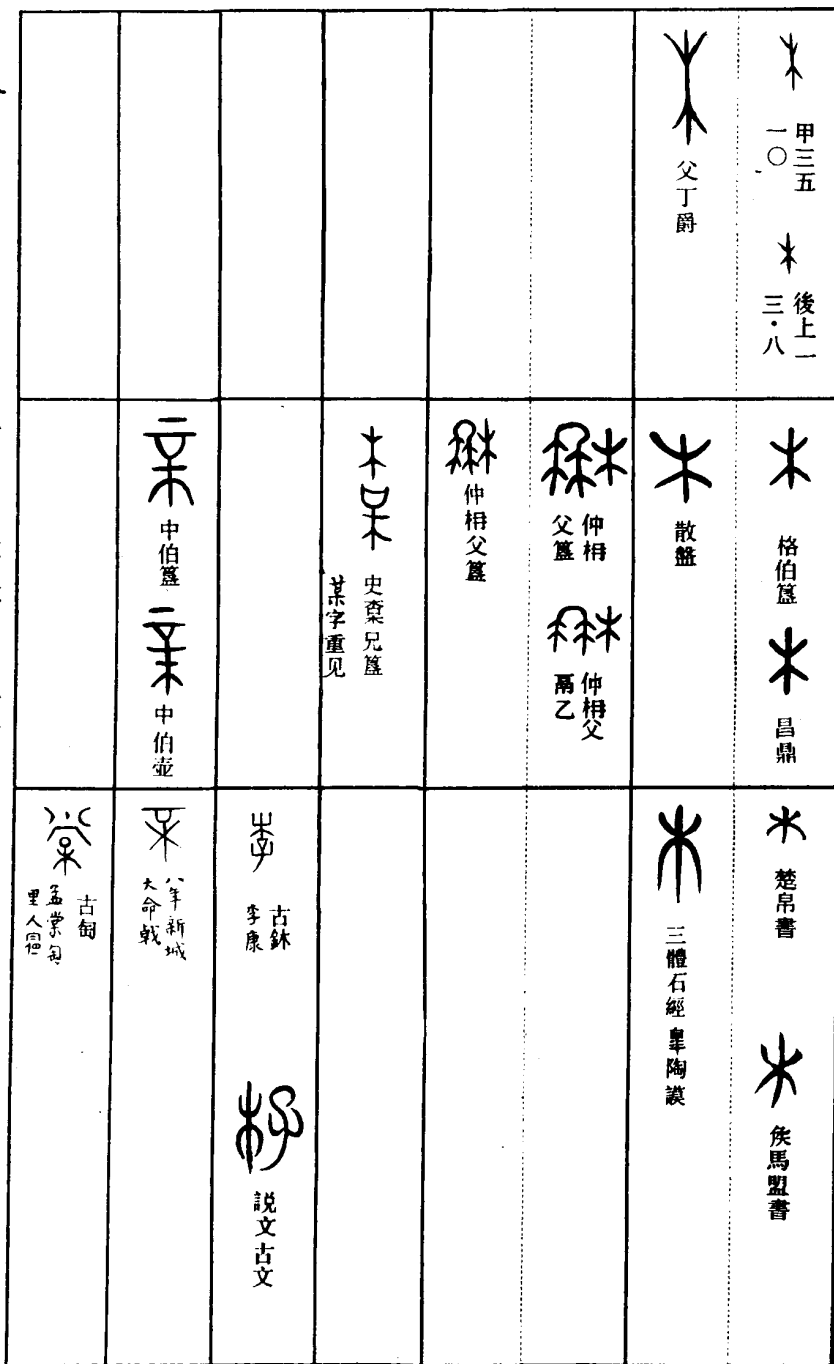 甲三五
一〇
後上一
三·八
父丁爵
格伯簋
昌鼎
散盤
仲枏
父簋
仲枏父
鬲乙
仲枏父簋
史楘兄簋
某字重见
中伯簋
中伯壺
楚帛書
矦馬盟書
三體石經 臯陶謨
古鉨
李康
説文古文
八年新城
大命戟
古匋
孟棠匋
里人